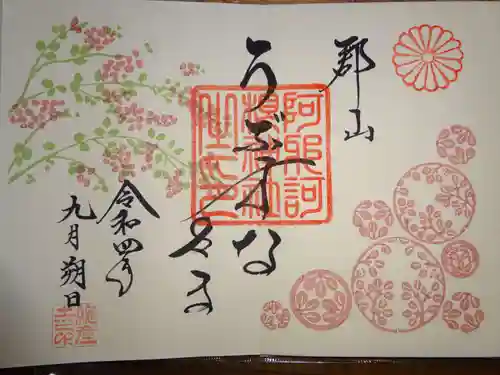 郡山
うぶすな
さま
阿邪訶
根神社
令和四年
九月朔日